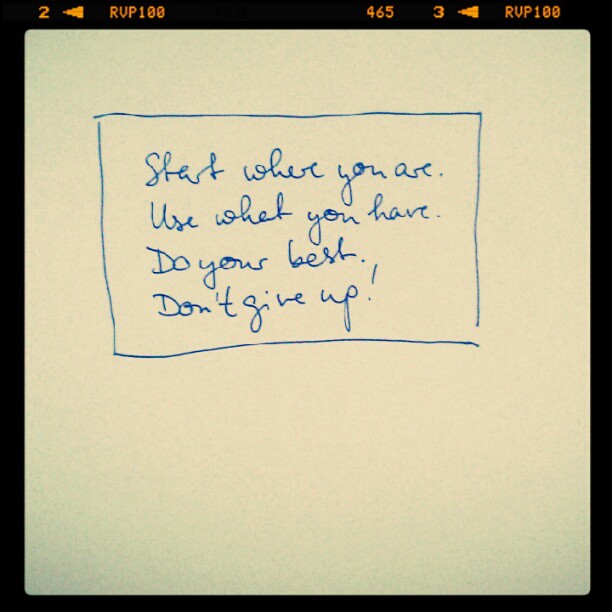 2 ◄ RVP100 465 3 ◄ RVP100
Start where you are.
Use what you have.
Do your best.
Don't give up!